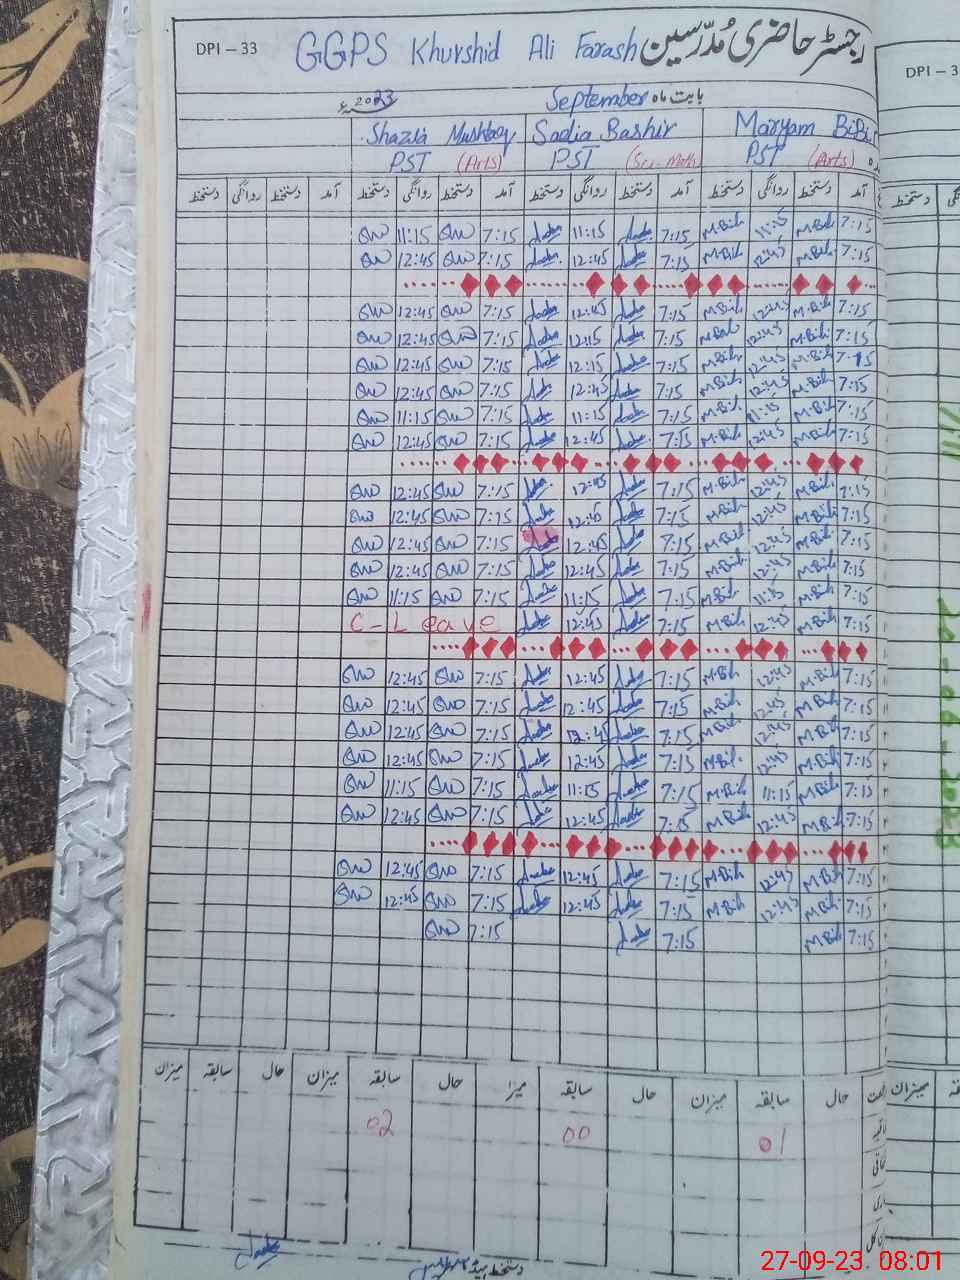 DPI – 33 GGPS Khurshid Ali Farash رجسٹر حاضری مُدرّسین
2023ء September بابت ماہ
Shazia Mushtaq Sadia Bashir Maryam BiBi
PST (Arts) PST (Sci-Math) PST (Arts)
آمد دستخط روانگی دستخط آمد دستخط روانگی دستخط آمد دستخط روانگی دستخط آمد دستخط روانگی دستخط
11:15 7:15 11:15 7:15 M.Bibi 11:15 M.Bibi 7:15
12:45 7:15 12:45 7:15 M.Bibi 12:45 M.Bibi 7:15
12:45 7:15 12:45 7:15 M.Bibi 12:45 M.Bibi 7:15
12:45 7:15 12:15 7:15 M.Bibi 12:45 M.Bibi 7:15
12:45 7:15 12:15 7:15 M.Bibi 12:45 M.Bibi 7:15
12:45 7:15 12:45 7:15 M.Bibi 12:45 M.Bibi 7:15
11:15 7:15 11:15 7:15 M.Bibi 11:15 M.Bibi 7:15
12:45 7:15 12:45 7:15 M.Bibi 12:45 M.Bibi 7:15
12:45 7:15 12:45 7:15 M.Bibi 12:45 M.Bibi 7:15
12:45 7:15 12:45 7:15 M.Bibi 12:45 M.Bibi 7:15
12:45 7:15 12:45 7:15 M.Bibi 12:45 M.Bibi 7:15
12:45 7:15 12:45 7:15 M.Bibi 12:45 M.Bibi 7:15
11:15 7:15 11:15 7:15 M.Bibi 11:15 M.Bibi 7:15
C-Leave 12:45 7:15 M.Bibi 12:45 M.Bibi 7:15
12:45 7:15 12:45 7:15 M.Bibi 12:45 M.Bibi 7:15
12:45 7:15 12:45 7:15 M.Bibi 12:45 M.Bibi 7:15
12:45 7:15 12:45 7:15 M.Bibi 12:45 M.Bibi 7:15
12:45 7:15 12:45 7:15 M.Bibi 12:45 M.Bibi 7:15
11:15 7:15 11:15 7:15 M.Bibi 11:15 M.Bibi 7:15
12:45 7:15 12:45 7:15 M.Bibi 12:45 M.Bibi 7:15
12:45 7:15 12:45 7:15 M.Bibi 12:45 M.Bibi 7:15
12:45 7:15 12:45 7:15 M.Bibi 12:45 M.Bibi 7:15
7:15 7:15 M.Bibi 7:15
حال سابقہ میزان حال سابقہ میزا حال سابقہ میزان حال سابقہ میزان
02 00 01
27-09-23 08:01